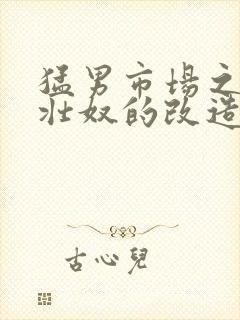 猛男市場之
壯奴的改造
古心兒